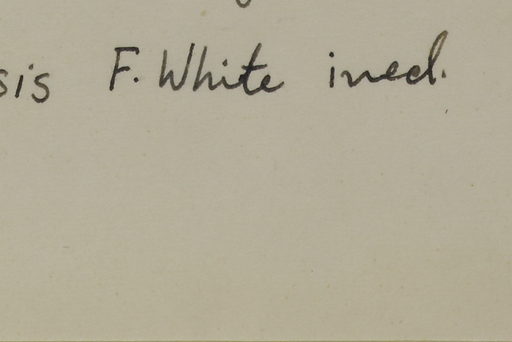 sis F. White ined.